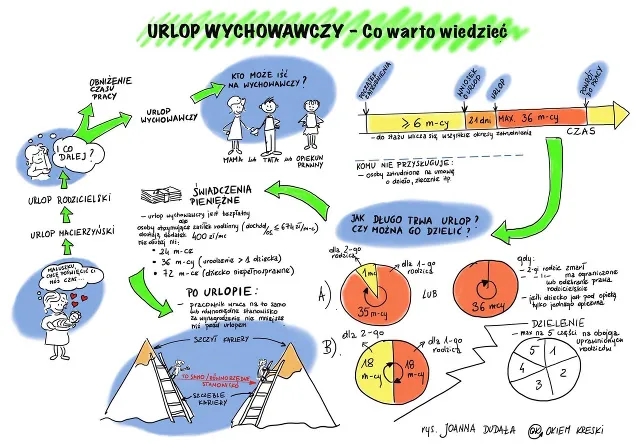 URLOP WYCHOWAWCZY - Co warto wiedzieć
OBNIŻENIE
CZASU
PRACY
URLOP
WYCHOWAWCZY
I CO
DALEJ?
URLOP RODZICIELSKI
URLOP MACIERZYŃSKI
MALUSZKU,
CHCĘ POŚWIĘCIĆ CI
MÓJ CZAS...
KTO MOŻE IŚĆ
NA WYCHOWAWCZY?
MAMA lub TATA lub OPIEKUN
PRAWNY
POCZĄTEK
ZATRUDNIENIA
WNIOSEK
O URLOP
URLOP
POWRÓT
DO PRACY
≥ 6 m-cy
21 dni
MAX. 36 m-cy
CZAS
- do stażu wlicza się wszystkie okresy zatrudnienia
KOMU NIE PRZYSŁUGUJE:
- osoby zatrudnione na umowę
o dzieło, zlecenie itp.
ŚWIADCZENIA
PIENIĘŻNE
- urlop wychowawczy jest bezpłatny
ale
osoby otrzymujące zasiłek rodzinny (dochód/os ≤ 674 zł/m-c)
dostają dodatek 400 zł/mc
nie dłużej niż:
• 24 m-ce
• 36 m-cy (urodzenie > 1 dziecka)
• 72 m-ce (dziecko niepełnosprawne)
JAK DŁUGO TRWA URLOP?
CZY MOŻNA GO DZIELIĆ?
A)
dla 2-go
rodzica
1 mc
dla 1-go
rodzica
35 m-cy
LUB
36 m-cy
gdy:
- 2-gi rodzic zmarł
ma ograniczone
lub odebrane prawa
rodzicielskie
- jeśli dziecko jest pod opieką
tylko jednego opiekuna
B)
dla 2-go
rodzica
dla 1-go
rodzica
18
m-cy
18
m-cy
DZIELENIE
- max na 5 części na obojga
uprawnionych
rodziców
5 1
4 2
3
PO URLOPIE:
- pracownik wraca na to samo
lub równorzędne stanowisko
za wynagrodzenie nie mniejsze
niż przed urlopem
SZCZYT KARIERY
TO SAMO / RÓWNORZĘDNE
STANOWISKO
SZCZEBLE
KARIERY
rys. JOANNA DUDAŁA OKIEM KRESKI